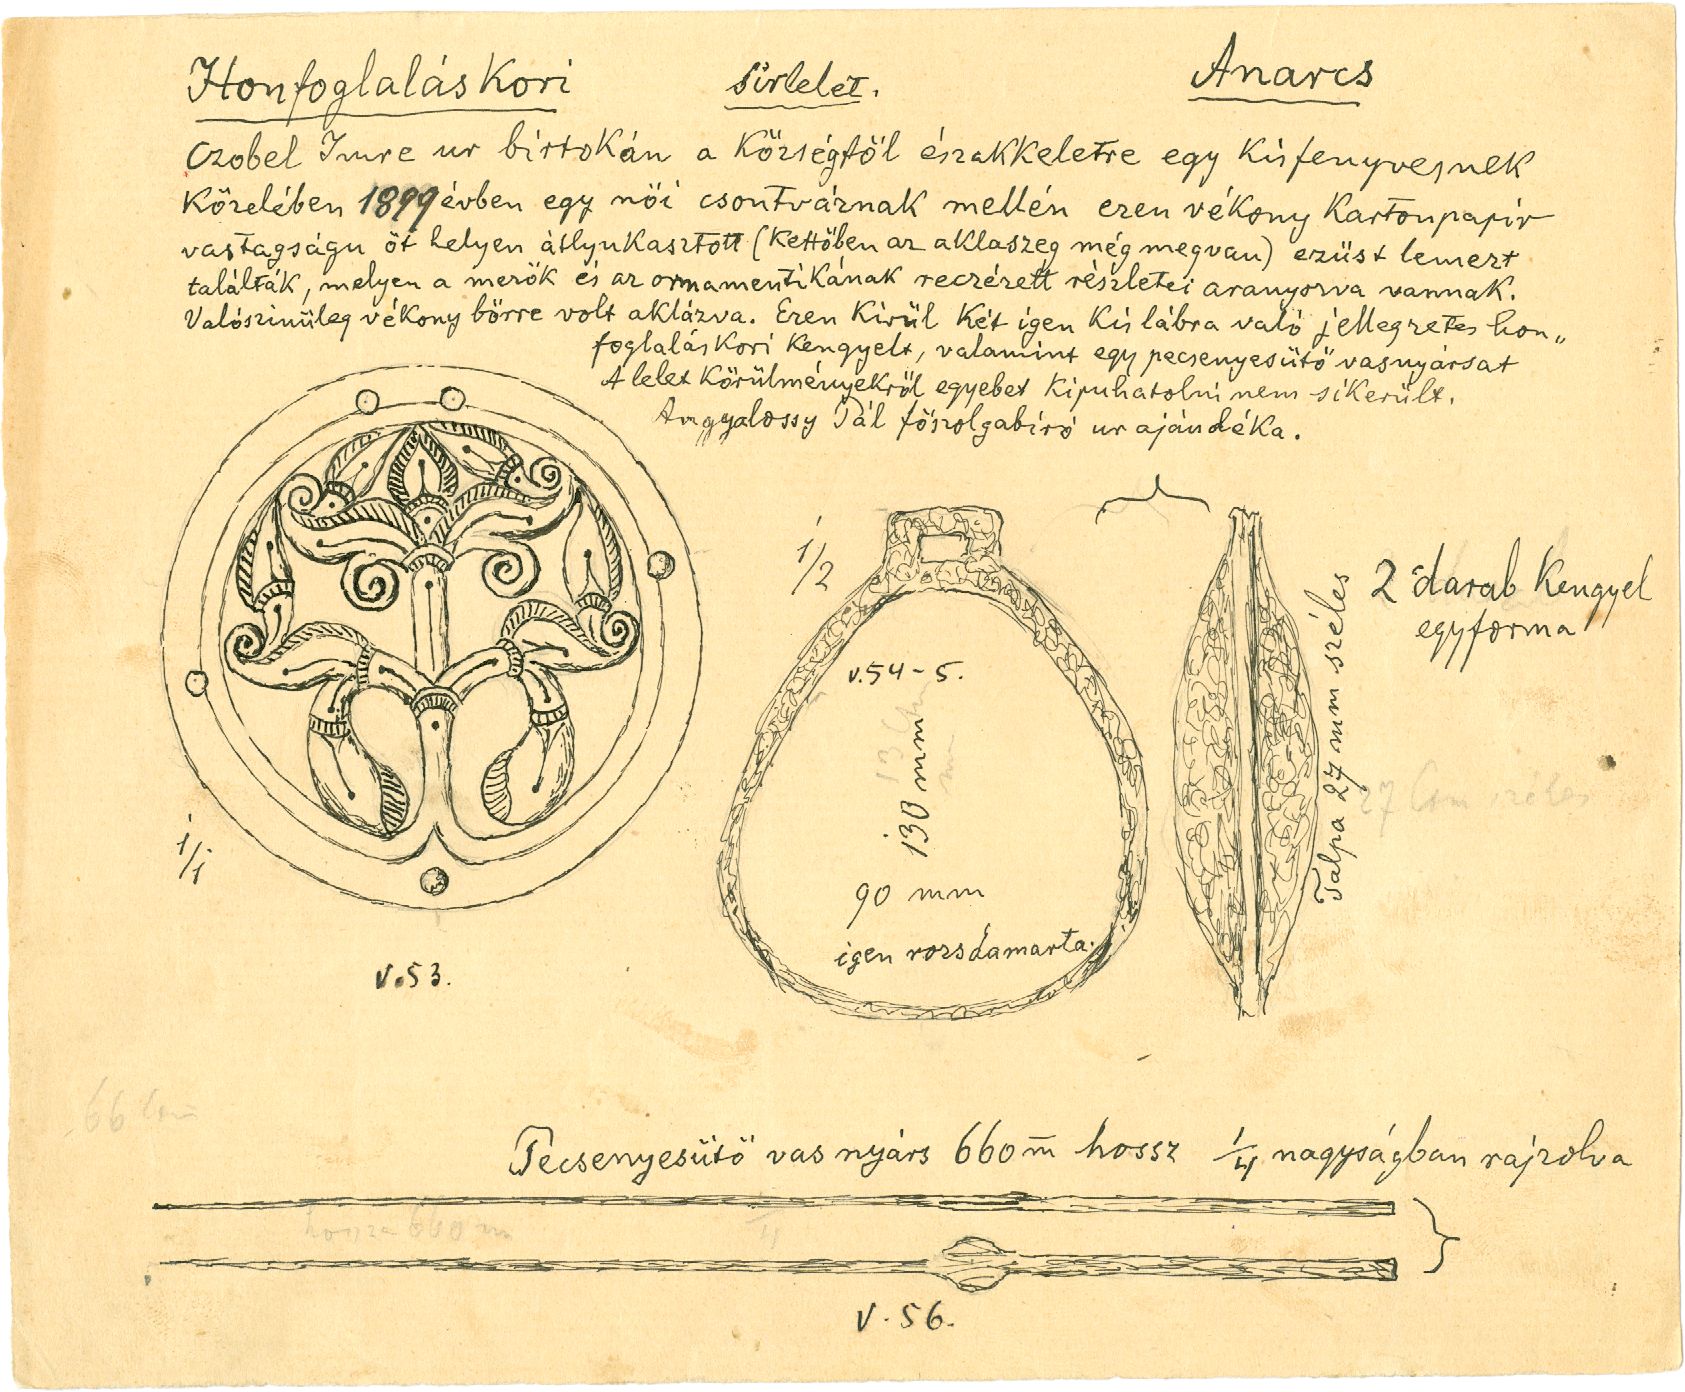 Honfoglaláskori sirlelet. Anarcs
Czobel Imre ur birtokán a községtől északkeletre egy kisfenyvesnek
közelében 1899 évben egy női csontváznak mellén ezen vékony kartonpapir
vastagságu öt helyen átlyukasztott (kettőben az aklaszeg még megvan) ezüst lemezt
találták, melyen a mezők és az ornamentikának reczézett részletei aranyozva vannak.
Valószinüleg vékony börre volt aklázva. Ezen kivül két igen kis lábra való jellegzetes hon„
foglaláskori kengyelt, valamint egy pecsenyesütő vasnyársat
A lelet körülményekről egyebet kipuhatolni nem sikerült.
Angyalossy Pál főszolgabiró ur ajándéka.
1/1
v.53.
1/2
v.54-5.
130 mm
90 mm
igen rozsdamarta.
Talpa 27 mm széles
2 darab kengyel
egyforma
27 széles
66
Pecsenyesütő vas nyárs 660 m̅ hossz 1/4 nagyságban rajzolva
hossza 660 m
v.56.